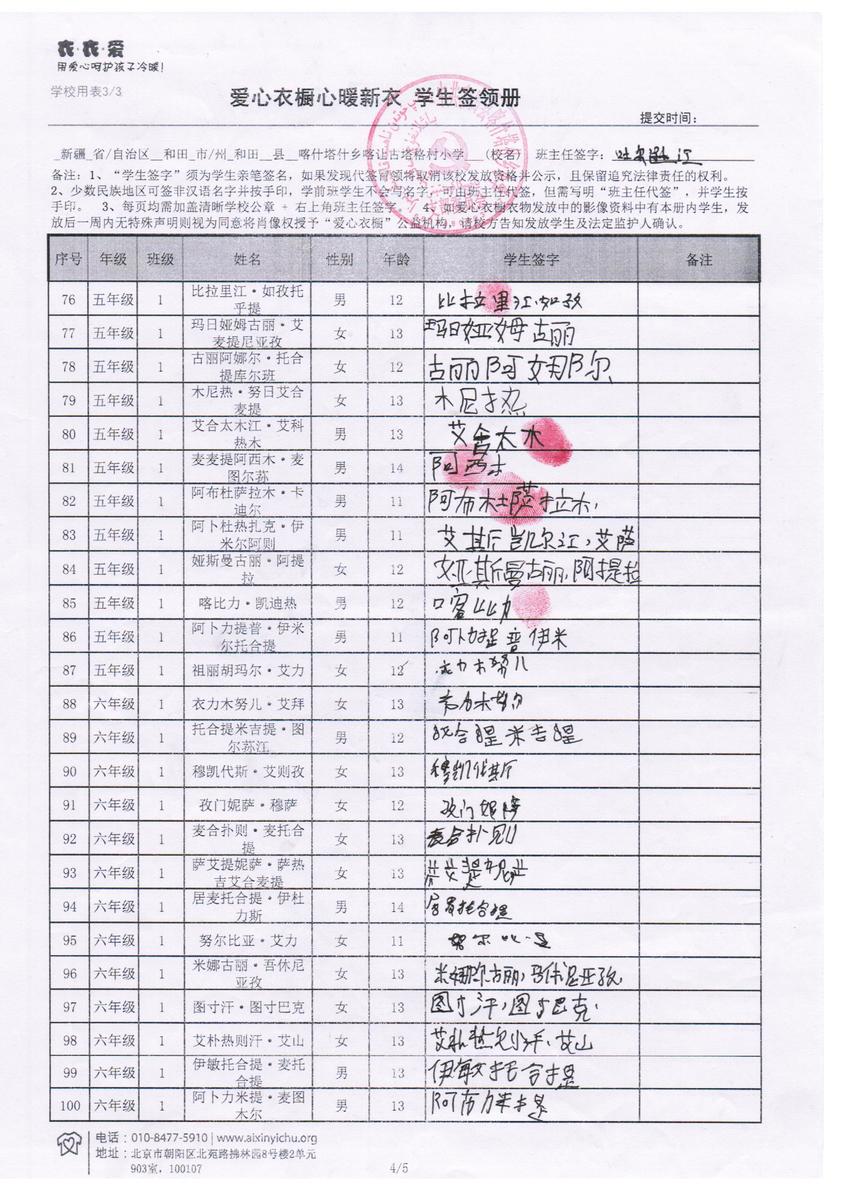 衣·衣·爱
用爱心呵护孩子冷暖!
学校用表3/3
爱心衣橱心暖新衣 学生签领册
提交时间:
_新疆_省/自治区__和田_市/州_和田__县__喀什塔什乡喀让古塔格村小学___(校名) 班主任签字:
备注:1、“学生签字”须为学生亲笔签名,如果发现代签冒领将取消该校发放资格并公示,且保留追究法律责任的权利。
2、少数民族地区可签非汉语名字并按手印,学前班学生不会写名字,可由班主任代签,但需写明“班主任代签”,并学生按
手印。 3、每页均需加盖清晰学校公章 + 右上角班主任签字。 4、如爱心衣橱衣物发放中的影像资料中有本册内学生,发
放后一周内无特殊声明则视为同意将肖像权授予“爱心衣橱”公益机构,请校方告知发放学生及法定监护人确认。
序号 年级 班级 姓名 性别 年龄 学生签字 备注
76 五年级 1 比拉里江·如孜托乎提 男 12 比拉里江.如孜
77 五年级 1 玛日娅姆古丽·艾麦提尼亚孜 女 13 玛日娅姆古丽
78 五年级 1 古丽阿娜尔·托合提库尔班 女 12 古丽阿娜尔
79 五年级 1 木尼热·努日艾合麦提 女 13 木尼热
80 五年级 1 艾合太木江·艾科热木 男 13 艾合太木
81 五年级 1 麦麦提阿西木·麦图尔荪 男 14 阿西木
82 五年级 1 阿布杜萨拉木·卡迪尔 男 11 阿布杜萨拉木.
83 五年级 1 阿卜杜热扎克·伊米尔阿则 男 11 艾斯凯尔江.艾萨
84 五年级 1 娅斯曼古丽·阿提拉 女 12 娅斯曼古丽.阿提拉
85 五年级 1 喀比力·凯迪热 男 12 喀比力
86 五年级 1 阿卜力提普·伊米尔托合提 男 11 阿卜力提普伊米
87 五年级 1 祖丽胡玛尔·艾力 女 12 衣力木努儿
88 六年级 1 衣力木努儿·艾拜 女 13
89 六年级 1 托合提米吉提·图尔苏江 男 12 托合提米吉提
90 六年级 1 穆凯代斯·艾则孜 女 13 穆凯代斯
91 六年级 1 孜门妮萨·穆萨 女 12 孜门妮萨
92 六年级 1 麦合扑则·麦托合提 女 13 麦合扑则
93 六年级 1 萨艾提妮萨·萨热吉艾合麦提 女 13
94 六年级 1 居麦托合提·伊杜力斯 男 14 居麦托合提
95 六年级 1 努尔比亚·艾力 女 11 努尔比亚
96 六年级 1 米娜古丽·吾休尼亚孜 女 13
97 六年级 1 图寸汗·图寸巴克 女 13 图寸汗.图寸巴克.
98 六年级 1 艾朴热则汗·艾山 女 13 艾朴热则汗.艾山
99 六年级 1 伊敏托合提·麦托合提 男 13 伊敏托合提
100 六年级 1 阿卜力米提·麦图木尔 男 13 阿布力米提
电话:010-8477-5910 | www.aixinyichu.org
地址:北京市朝阳区北苑路拂林园8号楼2单元
903室,100107
4/5